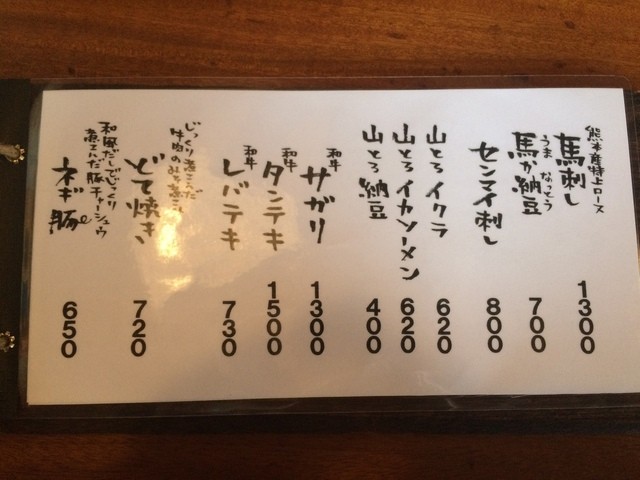 熊本産特上ロース
馬刺し
1300
うま なっとう
馬か納豆
700
センマイ刺し
800
山とろイクラ
620
山とろイカソーメン
620
山とろ納豆
400
和牛
サガリ
1300
和牛
タンテキ
1500
和牛
レバテキ
730
じっくり煮こんだ
牛肉のみそ煮こみ
どて焼き
720
和風だしでじっくり
煮こんだ豚チャーシュウ
ネギ豚
650